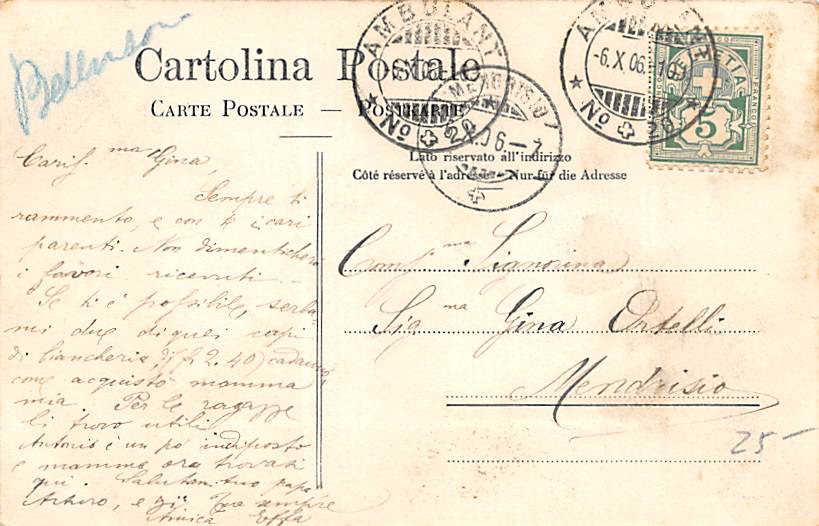 Cartolina Postale
CARTE POSTALE — POSTKARTE
AMBULANT
-6.X.06.-10
★ No 29 ★
MENDRISIO
HELVETIA
FRANCO
5
Lato riservato all'indirizzo
Côté réservé à l'adresse — Nur für die Adresse
Caris.ma Gina,
Sempre ti
rammento, e con te i cari
parenti. Non dimenticherò
i favori ricevuti.
Se ti è possibile, serba-
mi due di quei capi
di biancheria, di f. 2.40 cadauno
come acquistò mamma
mia. Per le ragazze
li trovo utili
Antonio è un po' indisposto
e mamma ora trovasi
qui. Salutami tuo papà
Arturo, e gi Tua sempre
Amica
Gentil.ma Signorina
Sig.na Gina Ortelli
Mendrisio
25-